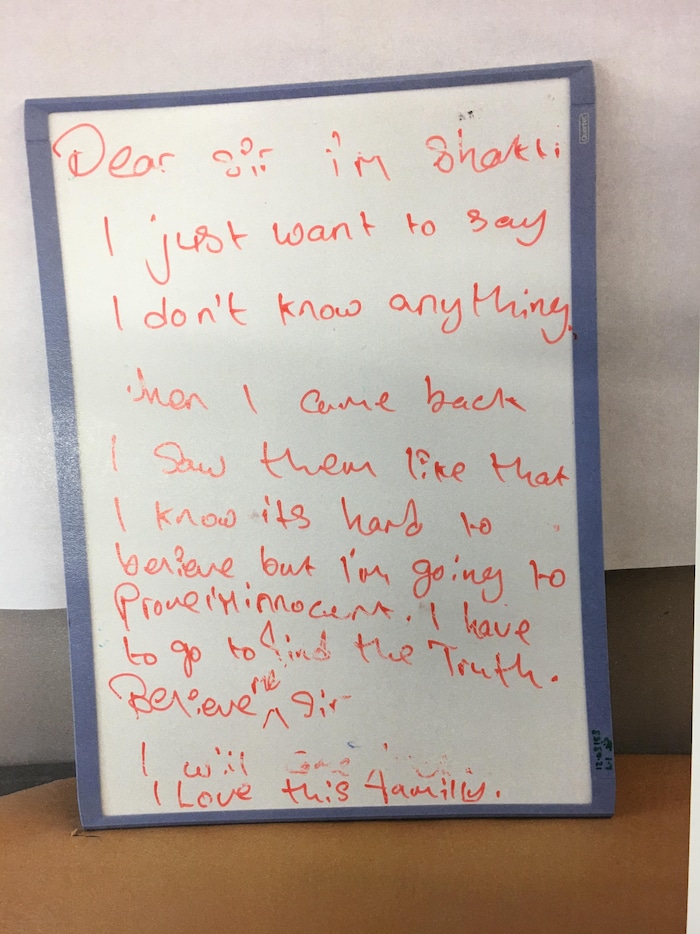 Dear sir i'm Shakti
I just want to say
I don't know anything
when I came back
I saw them like that
I know its hard to
believe but I'm going to
Prove i'M innocent. I have
to go to find the Truth.
Believe me sir
I will
I Love this familly.